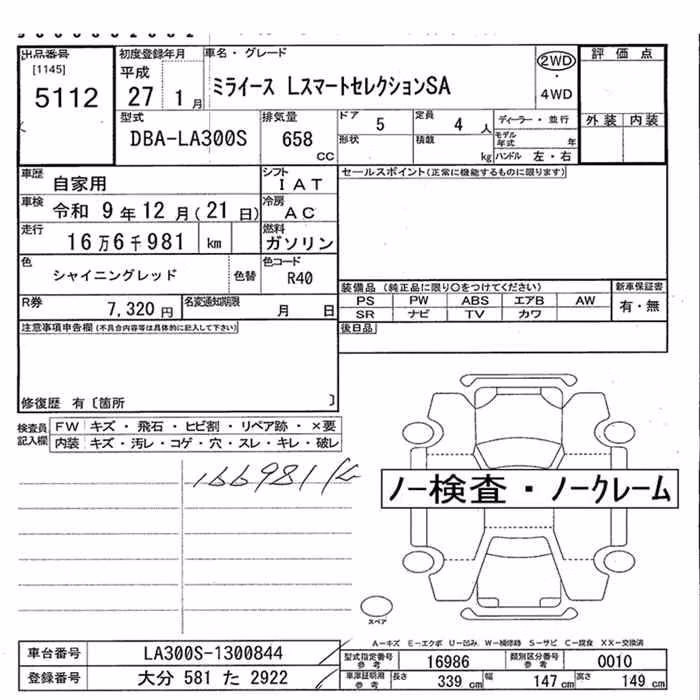 出品番号 初度登録年月 車名・グレード 評価点
[1145] 平成 2WD
5112 27 1月 ミライース LスマートセレクションSA ・
4WD
型式 排気量 ドア 5 定員 4 人 ディーラー・並行 外装 内装
DBA-LA300S 658 cc 形状 積載 kg モデル年式 年
ハンドル 左・右
車歴 自家用 シフト IAT セールスポイント(正常に機能するものに限ります)
車検 令和 9年 12月(21日) 冷房 AC
走行 16万6千981 km 燃料 ガソリン
色 シャイニングレッド 色替 色コード R40
装備品(純正品に限り○をつけてください) 新車保証書
R券 7,320円 名変通知期限 月 日 PS PW ABS エアB AW 有・無
SR ナビ TV カワ
注意事項申告欄(不具合内容等は具体的に記入して下さい) 後日品
修復歴 有〔箇所 〕
検査員記入欄 FW キズ・飛石・ヒビ割・リペア跡・×要
内装 キズ・汚レ・コゲ・穴・スレ・キレ・破レ
166981k
ノー検査・ノークレーム
スペア
A-キズ E-エクボ U-凹み W-補修跡 S-サビ C-腐食 XX-交換済
車台番号 LA300S-1300844 型式指定番号参考 16986 類別区分番号参考 0010
登録番号 大分 581 た 2922 車庫証明用参考 長さ 339 cm 幅 147 cm 高さ 149 cm